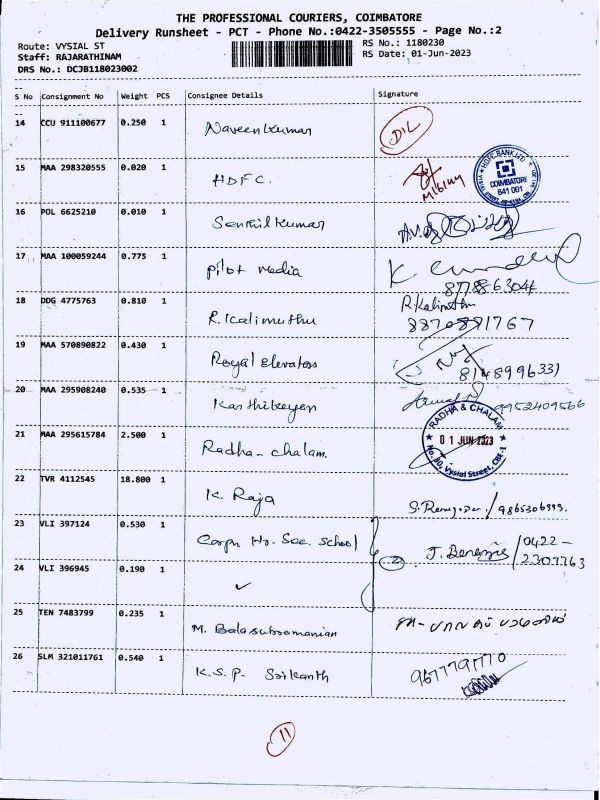 THE PROFESSIONAL COURIERS, COIMBATORE
Delivery Runsheet - PCT - Phone No.:0422-3505555 - Page No.:2
Route: VYSIAL ST
RS No.: 1180230
Staff: RAJARATHINAM
RS Date: 01-Jun-2023
DRS No.: DCJB118023002
S No Consignment No Weight PCS Consignee Details Signature
14 CCU 911100677 0.250 1 Naveenkumar D/L
15 MAA 298320555 0.020 1 HDFC.
HDFC BANK LTD
COIMBATORE
641 001
16 POL 6625210 0.010 1 Senthil Kumar
17 MAA 100059244 0.775 1 Pilot Media K.
18 DDG 4775763 0.810 1 R. Kalimuthu R Kalimuthu
8870891767
19 MAA 570890822 0.430 1 Royal Elevators
20 MAA 295908240 0.535 1 Karthikeyen 9952409566
21 MAA 295615784 2.500 1 Radha-chalam
RADHA & CHALAM
01 JUN 2023
No.80, Vysial Street, CBE-1
22 TVR 4112545 18.800 1 K. Raja
23 VLI 397124 0.530 1 Corpn Hr. Sec. School 0422-
2
24 VLI 396945 0.190 1 ✓
25 TEN 7483799 0.235 1 M. Balasubramanian
26 SLM 321011761 0.540 1 K.S.P. Srikanth
11